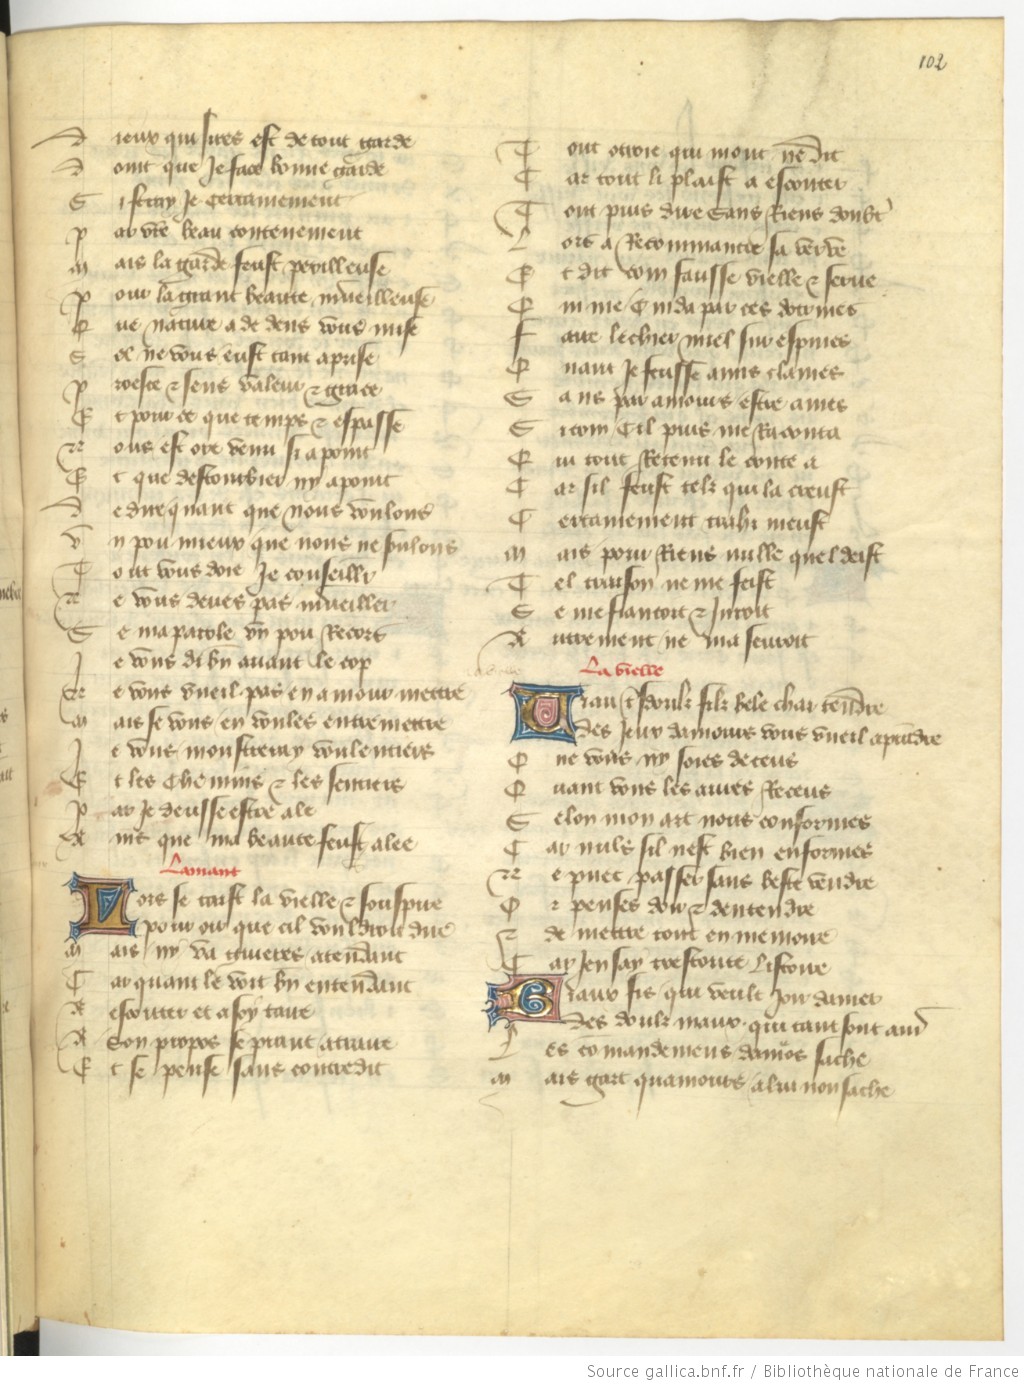 102
Dieux qui sires est de tout garde
Dont que Je face bonne garde
Si feray Je certainement
Par vr̄e beau contenement
Mais la garde feust perilleuse
Pour la grant beaute mveilleuse
Que nature a de dens vous mise
Sel ne vous eust tant aprise
Proesce & sens valeur & grace
Et pour ce que temps & espasse
Nous est ore venu si a point
Et que destourbier ny a point
De dire quant que nous voulons
Un pou mieux que nous ne soulons
Tout vous doie Je conseillr
Ne vous deves pas mveiller
Se ma parole vn pou Recors
Je vous di bn̄ auant le cop
Ne vous vueil pas en amour mettre
Mais se vous en voules entremettre
Je vous monstreray voulentiers
Et les chemins & les sentiers
Par Je deusse estre ale
Ains que ma beaute feust alee
Lamant
Lors se taist la vielle & souspire
pour oir que cil vouldroit dire
Mais ny va guieres atendant
Car quant le voit bn̄ entendant
A escouter et a soy taire
A son propos se prant a traire
Et se pense sans contredit
Tout ottroie qui mout ne dit
Car tout li plaist a escouter
Tout puis dire sans Riens doubt'
Lors a Recommancie sa verve
Et dit com fausse vielle & serve
Qui me Cuida par ces doctrines
Faire lechier miel sur espines
Quant Je feusse amis clames
Sans par amours estre ames
Si com Cil puis me Raconta
Qui tout Retenu le conte a
Car sil feust telz qui la creust
Certainement trahi meust
Mais pour Riens nulle quel deist
Tel traison ne me feist
Se me fiancoit & Juroit
Autrement ne masseuroit
La vielle
Biau tsdoulz filz bele char tendre
Des Jeux damours vous vueil aprendre
Que vous ny soies deceus
Quant vous les aures Receus
Selon mon art vous conformes
Car nuls sil nest bien enformes
Ne puet passer sans beste vendre
Or penses doir & dentendre
& de mettre tout en memoire
Car Jen say trestoute listoire
Biaux fis qui veult Joir damer
Des doulz maux qui tant sont am̄
Les comandemens damo's sache
Mais gart quamours a lui non sache
Source gallica.bnf.fr / Bibliothèque nationale de France